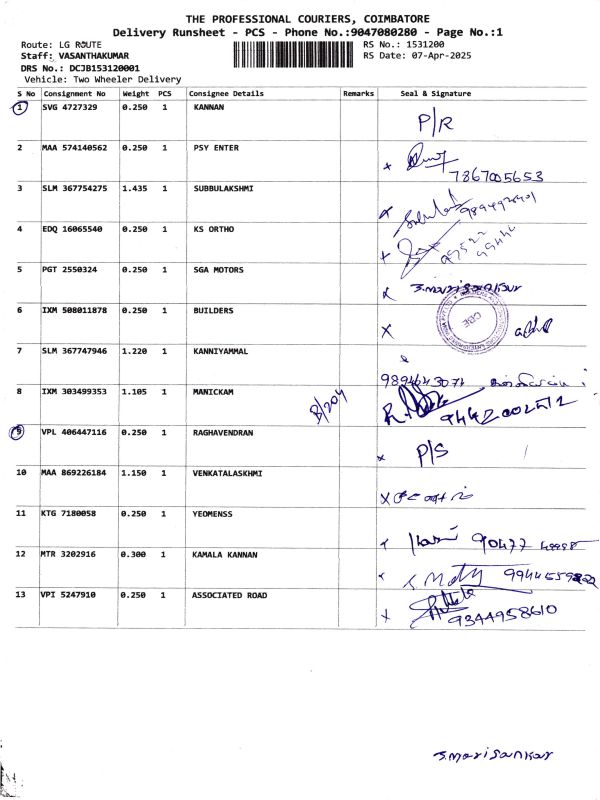 THE PROFESSIONAL COURIERS, COIMBATORE
Delivery Runsheet - PCS - Phone No.:9047080280 - Page No.:1
Route: LG ROUTE
RS No.: 1531200
Staff: VASANTHAKUMAR
RS Date: 07-Apr-2025
DRS No.: DCJB153120001
Vehicle: Two Wheeler Delivery
S No Consignment No Weight PCS Consignee Details Remarks Seal & Signature
1 SVG 4727329 0.250 1 KANNAN P/R
2 MAA 574140562 0.250 1 PSY ENTER
7867005653
3 SLM 367754275 1.435 1 SUBBULAKSHMI
4 EDQ 16065540 0.250 1 KS ORTHO
5 PGT 2550324 0.250 1 SGA MOTORS S.mariSankar
6 IXM 508011878 0.250 1 BUILDERS
CBE
7 SLM 367747946 1.220 1 KANNIYAMMAL
9894643071
8 IXM 303499353 1.105 1 MANICKAM B/204
9 VPL 406447116 0.250 1 RAGHAVENDRAN P/S
10 MAA 869226184 1.150 1 VENKATALASKHMI
11 KTG 7180058 0.250 1 YEOMENSS
12 MTR 3202916 0.300 1 KAMALA KANNAN
13 VPI 5247910 0.250 1 ASSOCIATED ROAD
9344958610
S.mariSankar